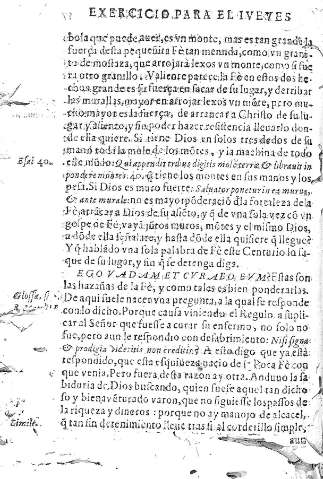 EXERCICIO PARA EL IVEVES
bola que puede auer, es vn monte, mas es tan grande la
fuerça desta pequeñita Fè tan menuda, como vn grani-
to de mostaza, que arrojarà lexos vn monte, como si fue
ra otro granillo. Valiente parece la Fè en estos dos he-
chos, grande es su fuerça en sacar de su lugar, y derribar
las murallas, mayor en arrojar lexos vn mõte, pero mu-
cho mayor es la fuerça, de arrancar a Christo de su lu-
gar, y assiento, y sin poder hazer resistencia lleuarlo don-
de ella quiere. Si tiene Dios en solos tres dedos de su
mano toda la mole de los mõtes, y la machina de todo
Esai 40.
este mũdo: Qui appendit tribus digitis molẽ terræ & librauit in
pondere mõtes. 40. q̃ tiene los montes en sus manos y los
pesa. Si Dios es muro fuerte: Saluator ponetur in ea murus
& ante murale: no es mayor põderaciõ d la fortaleza de la
Fè, atràçar a Dios de su asiẽto, y q̃ de vna sola vez cõ vn
golpe de Fè, vayã jũtos muros, mõtes y el mismo Dios,
adõde ella señalare, y hasta dõde ella quisiere q̃ lleguẽ?
Y q̃ hablãdo vna sola palabra de Fè este Centurio lo sa-
que de su lugar, y sin q̃ se detenga diga.
EGO VADAM ET CVRABO EVM? Estas son
las hazañas de la Fè, y como tales es bien ponderarlas.
Glossa.
De aqui suele nacer vna pregunta, a la qual se responde
con lo dicho. Porque causa viniendo el Regulo a suplic-
ar al Señor que fuesse a curar su enfermo, no solo no
fue, pero aun le respondio con desabrimiento: Nisi signa
& prodigia videritis non creditis? A esto digo que ya està
respondido, que esta esquiuez nacio de su Poca Fè con
que venia. Pero fuera desta razon ay otra. Anduuo la sa-
biduria de Dios buscando, quien fuese aquel tan dicho
so y bienauẽturado varon, que no siguiesse los passos de
la riqueza y dineros: porque no ay manojo de alcacel,
Simile.
q̃ tan sin detenimiento lleue tras si al corderillo simple,
aun